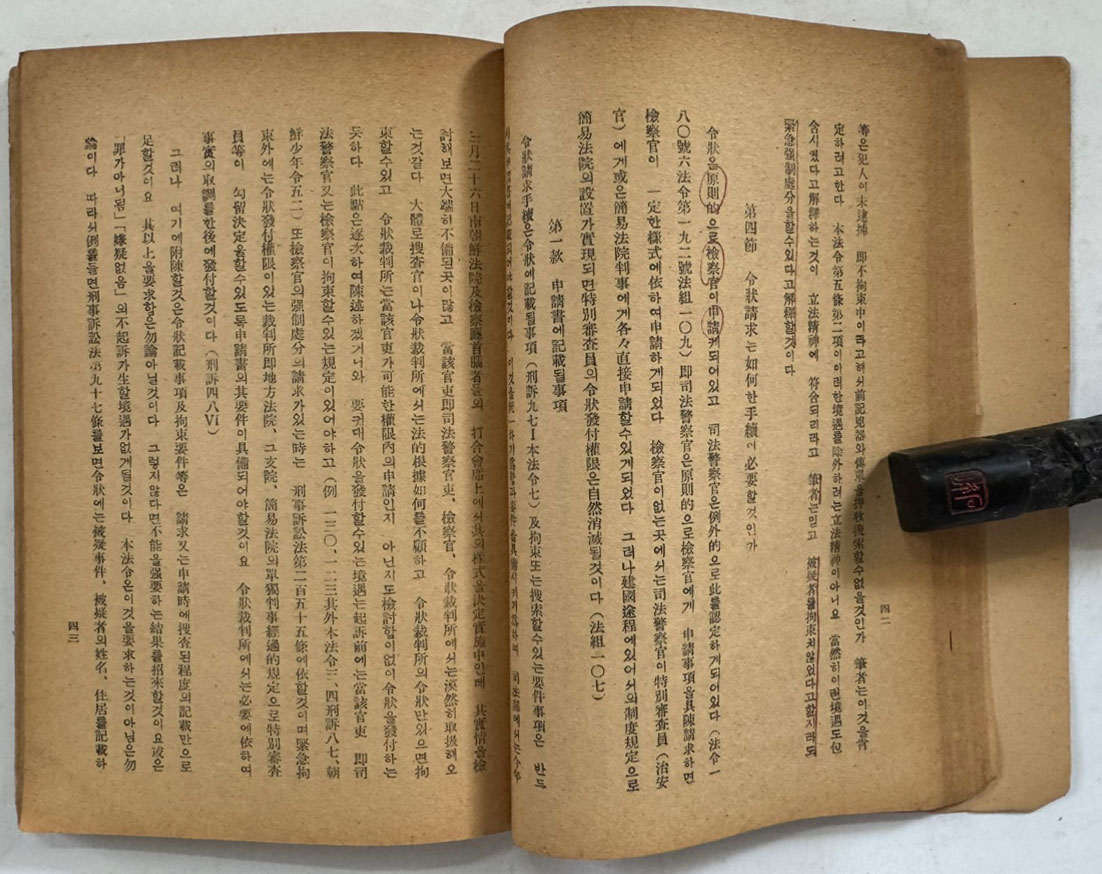 等은犯人이未逮捕 即不拘束中이라고해서前記兇器와傳單을押收搜索할수없을것인가 筆者는이것을肯
定하려고한다 本法令第五條第二項이이러한境遇를除外하려는立法精神이아니요 當然히이런境遇도包
含시켰다고解釋하는것이 立法精神에 符合되리라고 筆者는믿고 被疑者를拘束치않었다고할지라도
緊急强制處分을할수있다고解釋할것이다
四二
第四節 令狀請求는如何한手續이必要할것인가
令狀을原則的으로檢察官이申請케되어있고 司法警察官은例外的으로此를認定하게되어있다(法令一
八〇號六法令第一九二號法組一〇九)即司法警察官은原則的으로檢察官에게 申請事項을具陳請求하면
檢察官이 一定한樣式에依하여申請하게되었다 檢察官이없는곳에서는司法警察官이特別審査員(治安
官)에게或은簡易法院判事에게各々直接申請할수있게되었다 그러나建國途程에있어서의制度規定으로
簡易法院의設置가實現되면特別審査員의令狀發付權限은自然消滅될것이다(法組一〇七)
第一款 申請書에記載될事項
令狀請求手續은令狀에記載될事項(刑訴九七I本法令七)及拘束또는搜索할수있는要件事項은 반드
三月二十六日南朝鮮法院及檢察廳首腦者들의 打合會席上에서其의樣式을決定實施中인데 其實情을檢
討해보면大端히不備된곳이많고 當該官吏即司法警察官吏、檢察官、令狀裁判所에서는漠然히取扱해오
는것같다 大體로搜査官이나令狀裁判所에서는法的根據如何를不顧하고 令狀裁判所의令狀만있으면拘
束할수있고 令狀裁判所는當該官吏가可能한權限內의申請인지 아닌지도檢討함이없이令狀을發付하는
듯하다 此點은逐次하여陳述하겠거니와 要컨대令狀을發付할수있는境遇는起訴前에는當該官吏 即司
法警察官又는檢察官이拘束할수있는規定이있어야하고(例 一三〇、一二三其外本法令三、四刑訴八七、朝
鮮少年令五二)또檢察官의强制處分의請求가있는時는 刑事訴訟法第二百五十五條에依할것이며緊急拘
束外에는令狀發付權限이있는裁判所即地方法院、그支院、簡易法院의單獨判事經過的規定으로特別審査
員等이 勾留決定을할수있도록申請書의其要件이具備되어야할것이요 令狀裁判所에서는必要에依하여
事實의取調를한後에發付할것이다(刑訴四八Ⅵ)
그러나 여기에附陳할것은令狀記載事項及拘束要件等은 請求又는申請時에搜査된程度의記載만으로
足할것이요 其以上을要求함은勿論아닐것이다 그렇지않다면不能을强要하는結果를招來할것이요或은
「罪가아니됨」「嫌疑없음」의不起訴가生할境遇가없게될것이다 本法令은이것을要求하는것이아님은勿
論이다 따라서例를들면刑事訴訟法第九十七條를보면令狀에는被疑事件、被疑者의姓名、住居를記載하
四三